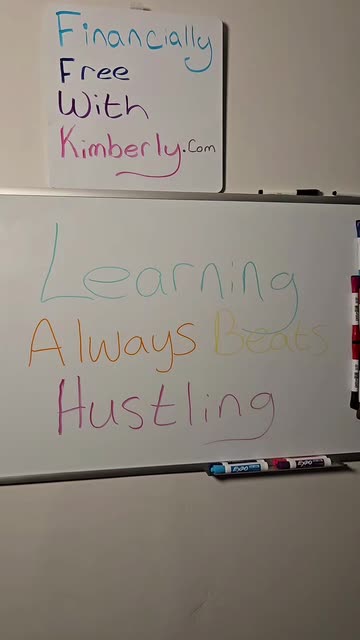 Financially
Free
With
Kimberly.com
Learning
Always Beats
Hustling
EXPO
EXPO